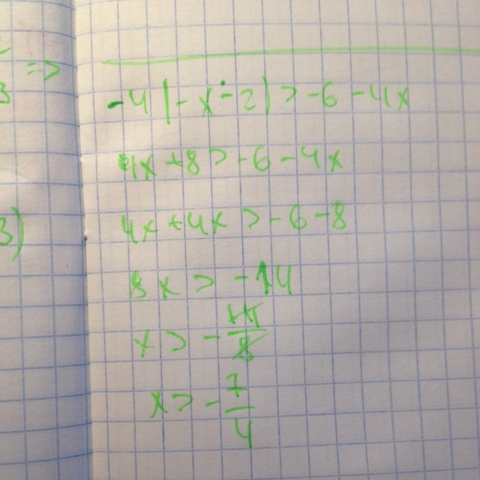 =>
3
-4(-x-2)>-6-4x
4x+8>-6-4x
3)
4x+4x>-6-8
8x>-14
x>-14/8
x>-7/4